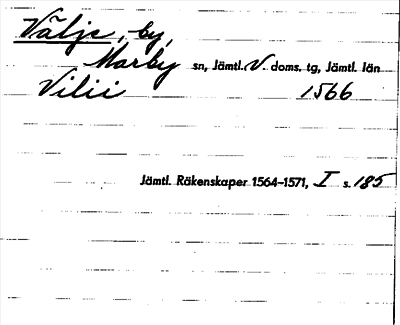 Välje, by,
Marby sn, Jämtl. V. doms. tg, Jämtl. län
Vilii 1566
Jämtl. Räkenskaper 1564-1571, I s. 185